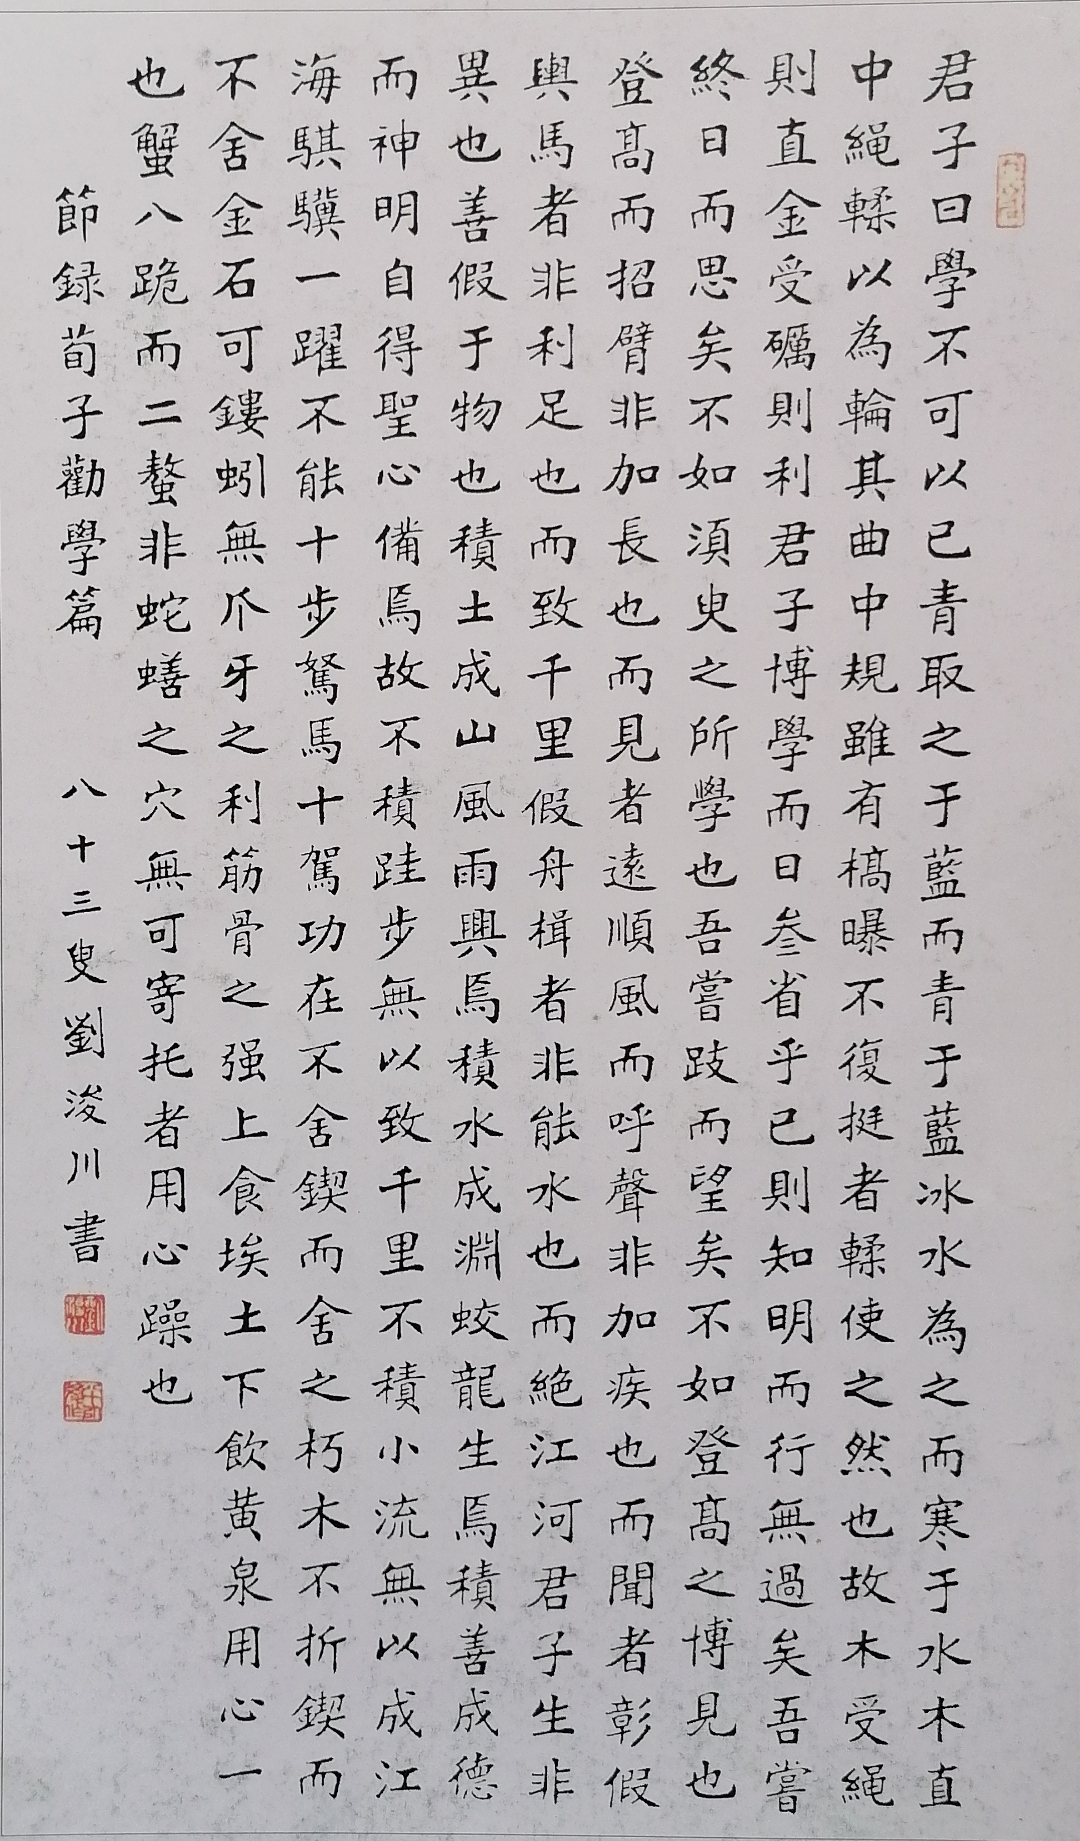 君子曰學不可以已青取之于藍而青于藍冰水為之而寒于水木直
中繩輮以為輪其曲中規雖有槁曝不復挺者輮使之然也故木受繩
則直金受礪則利君子博學而日參省乎己則知明而行無過矣吾嘗
終日而思矣不如須臾之所學也吾嘗跂而望矣不如登高之博見也
登高而招臂非加長也而見者遠順風而呼聲非加疾也而聞者彰假
輿馬者非利足也而致千里假舟楫者非能水也而絕江河君子生非
異也善假于物也積土成山風雨興焉積水成淵蛟龍生焉積善成德
而神明自得聖心備焉故不積跬步無以致千里不積小流無以成江
海騏驥一躍不能十步駑馬十駕功在不舍鍥而舍之朽木不折鍥而
不舍金石可鏤蚓無爪牙之利筋骨之强上食埃土下飲黄泉用心一
也蟹八跪而二螯非蛇蟮之穴無可寄托者用心躁也
節録荀子勸學篇
八十三叟劉浚川書